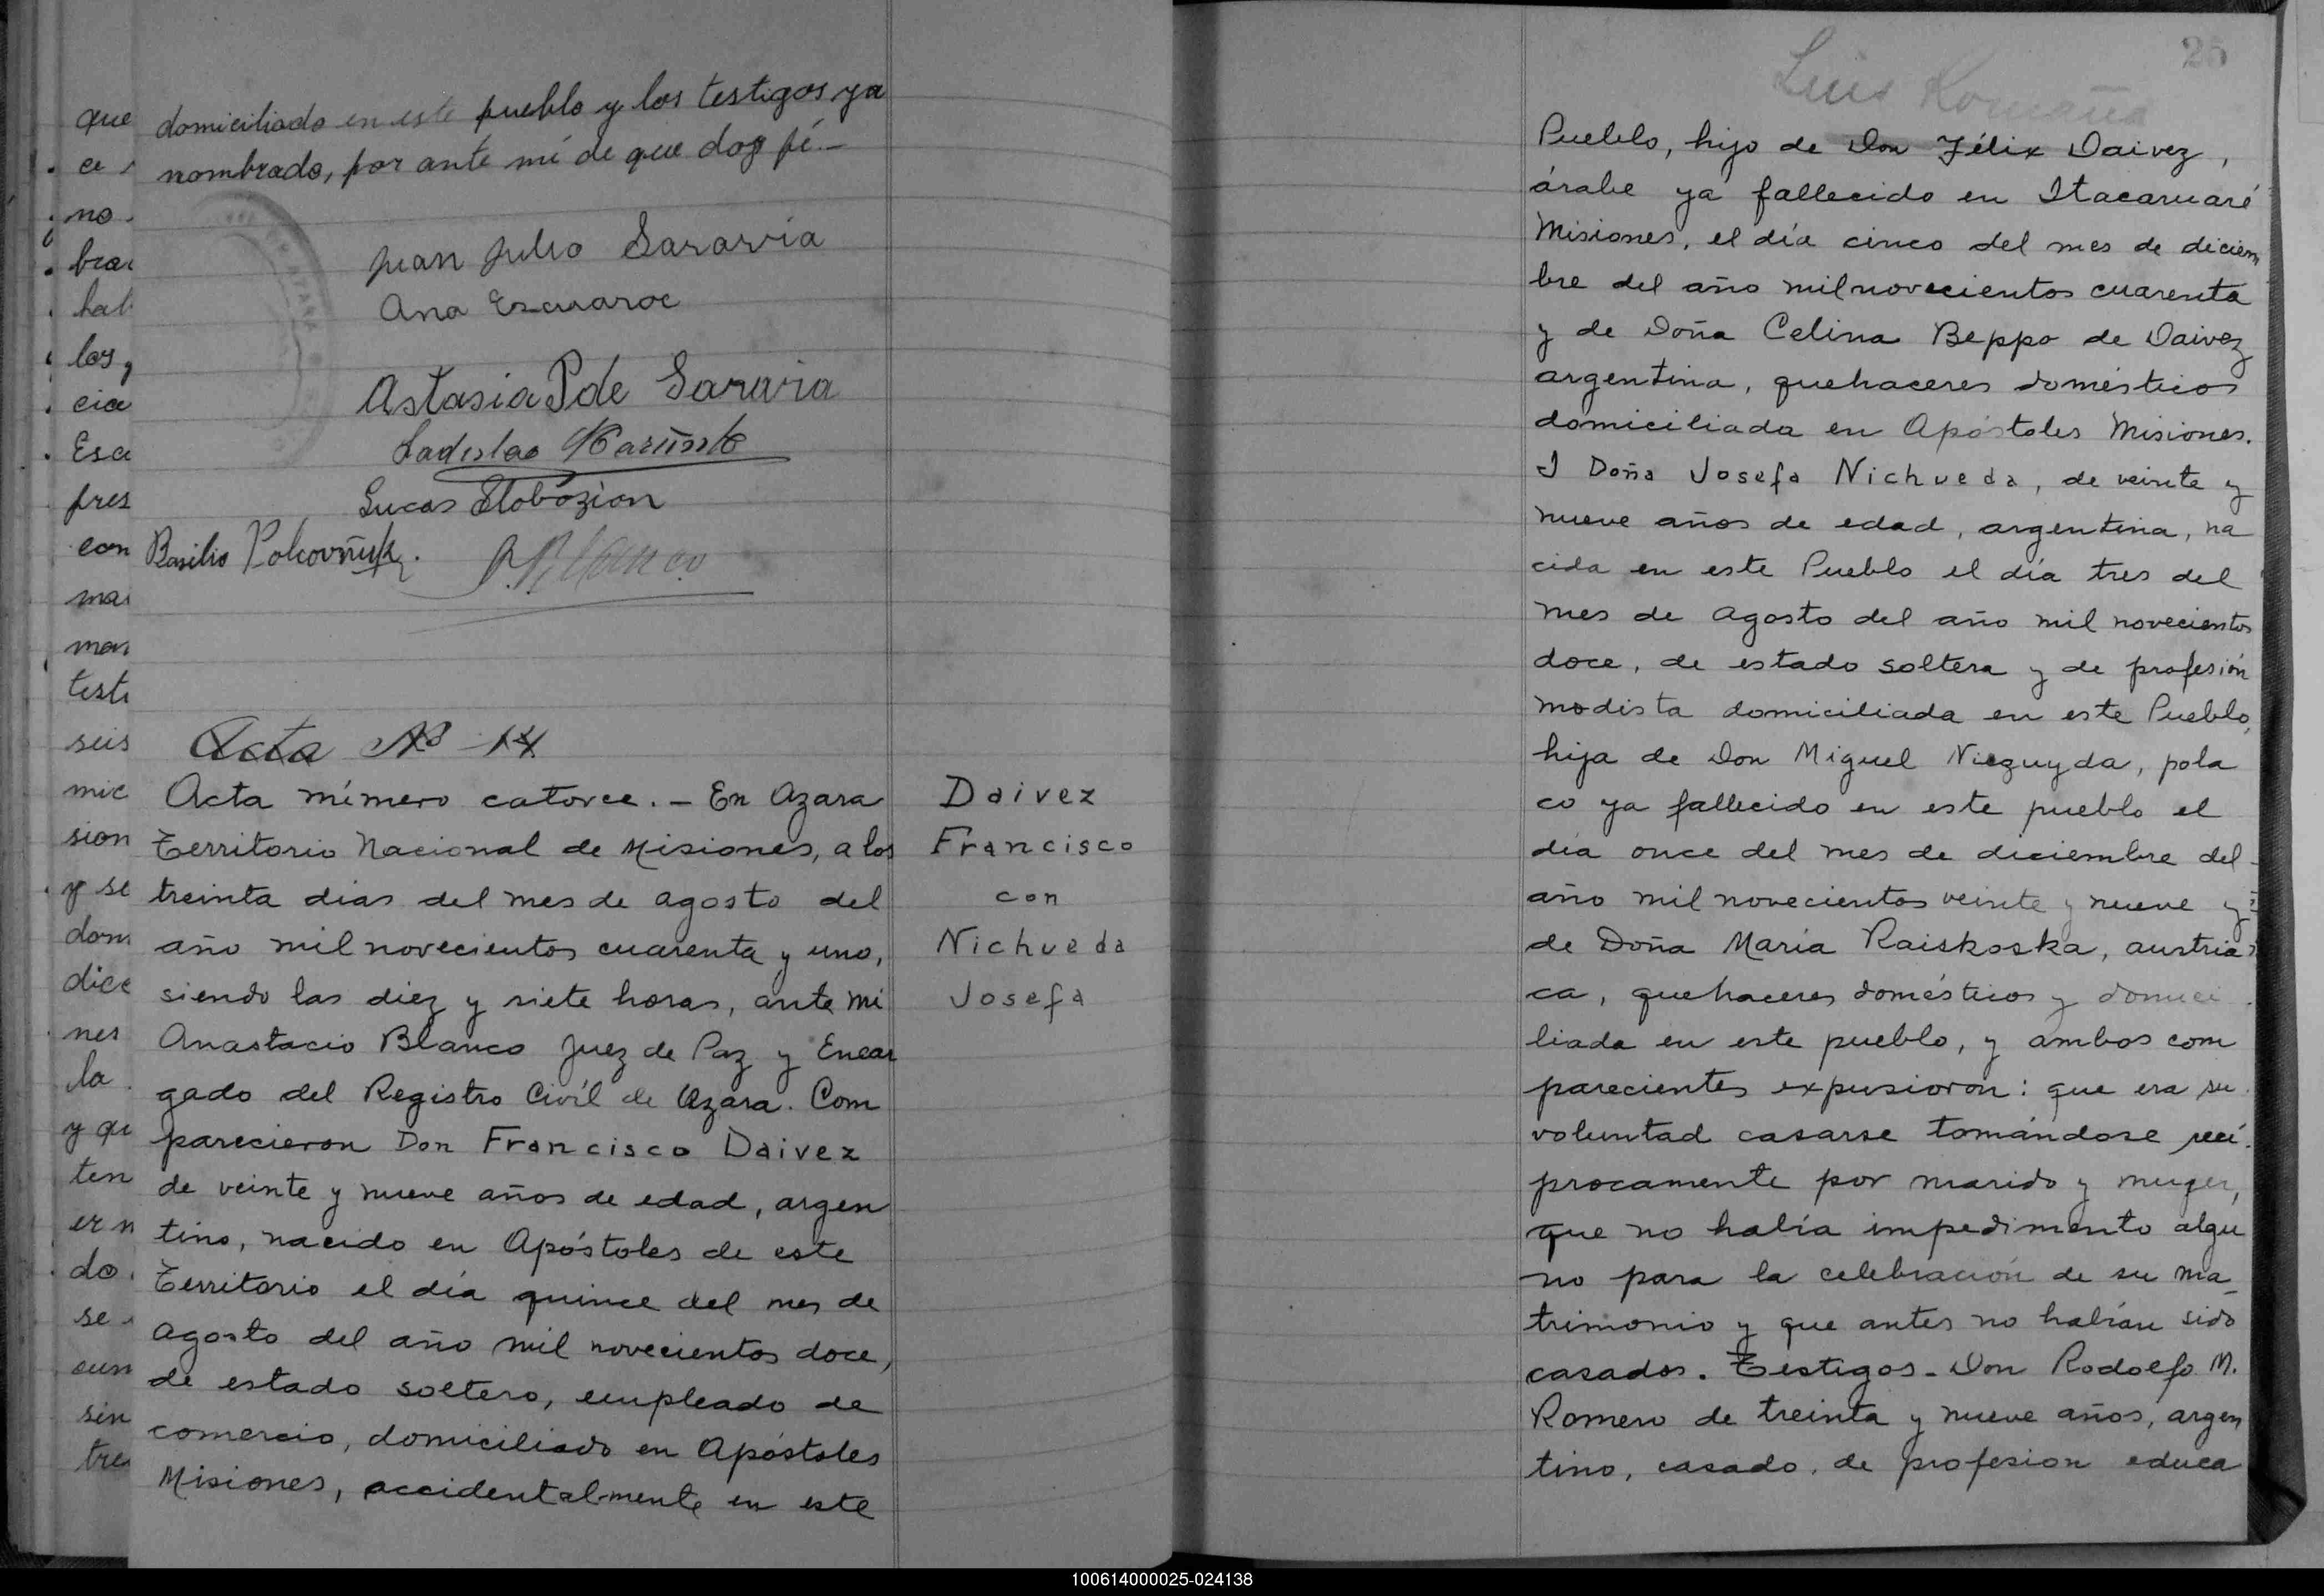 domiciliado en este pueblo y los testigos ya
nombrado, por ante mí de que doy fé.—
Juan Julio Sararvia
Ana
Astasia P de Sararia
Ladislao
Lucas
Basilio
A. Blanco
Acta Nº 14
Acta número catorce. — En Azara
Territorio Nacional de Misiones, a los
treinta dias del mes de agosto del
año mil novecientos cuarenta y uno,
siendo las diez y siete horas, ante mi
Anastacio Blanco Juez de Paz y Encar
gado del Registro Civíl de Azara. Com
parecieron Don Francisco Daivez
de veinte y nueve años de edad, argen
tino, nacido en Apóstoles de este
Territorio el día quince del mes de
Agosto del año mil novecientos doce,
de estado soltero, empleado de
comercio, domiciliado en Apóstoles
Misiones, accidentalmente en este
Daivez
Francisco
con
Nichveda
Josefa
que
ce
no
hal
los
cia
Esa
pres
con
mar
mar
testi
seis
mic
sion
y se
dom
dice
nes
la
y qu
ten
ern
do
se
cum
sin
tre
25
Luis Romaña
Pueblo, hijo de Don Félix Daivez,
árabe ya fallecido en Itacaruaré
Misiones, el día cinco del mes de diciem
bre del año mil novecientos cuarenta
y de Doña Celina Beppo de Daivez
argentina, quehaceres domésticos
domiciliada en Apóstoles Misiones.
I Doña Josefa Nichveda, de veinte y
nueve años de edad, argentina, na
cida en este Pueblo el día tres del
mes de Agosto del año mil novecientos
doce, de estado soltera y de profesión
modista domiciliada en este Pueblo,
hija de Don Miguel Niezuyda, pola
co ya fallecido en este pueblo el
día once del mes de diciembre del
año mil novecientos veinte y nueve y
de Doña María Raiskoska, austria
ca, quehaceres domésticos y domici
liada en este pueblo, y ambos com
parecientes expusioron: que era su
voluntad casarse tomándose recí
procamente por marido y muger,
que no había impedimento algu
no para la celebración de su ma_
trimonio y que antes no habían sido
casados. Testigos - Don Rodolfo M.
Romero de treinta y nueve años, argen
tino, casado, de profesion educa
100614000025-024138